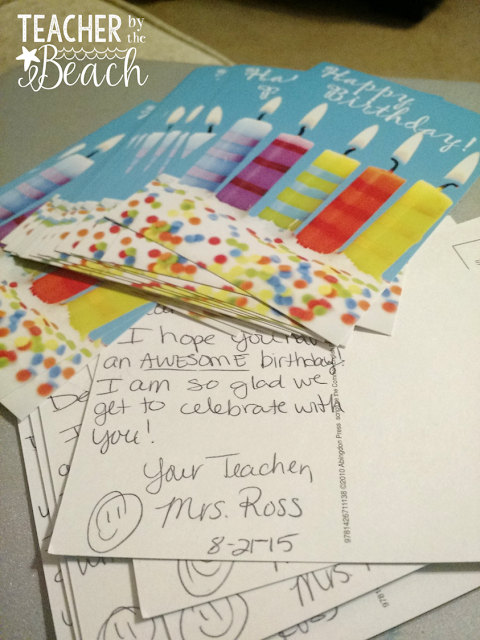 TEACHER by the Beach
Happy
Birthday!
Ha
B
I hope you
an AWESOME birthday!
I am so glad we
get to celebrate with
you!
Your Teacher,
Mrs. Ross
8-21-15
9781426711138 ©2010 Abingdon Press
De
I
Mrs.